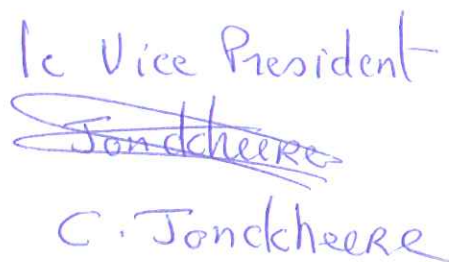 le Vice President
Jonckheere
C. Jonckheere